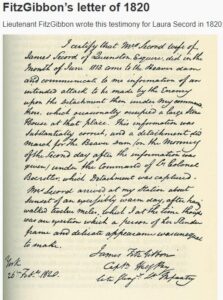 FitzGibbon's letter of 1820
Lieutenant FitzGibbon wrote this testimony for Laura Secord in 1820
I certify that Mrs Secord wife of
James Secord of Queenston Esquire, did in the
Month of June 1813 come to the Beaver dam
and communicate to me information of an
intended attack to be made by the Enemy
upon the detachment then under my command
there, which occasionally occupied a large Stone
House at that place. This information was
substantially correct, and a detachment did
march for the Beaver Dam on the Morning
of the second day after the information was
given under the Command of Lt Colonel
which Detachment was captured.
Mrs Secord arrived at my Station about
Sunset of an excessively warm day, after having
walked twelve miles, which I at the time, thought
was an exertion which a person of her slender
frame and delicate appearance was unequal
to make.
James FitzGibbon
York Capt.
26th Feby 1820. Late